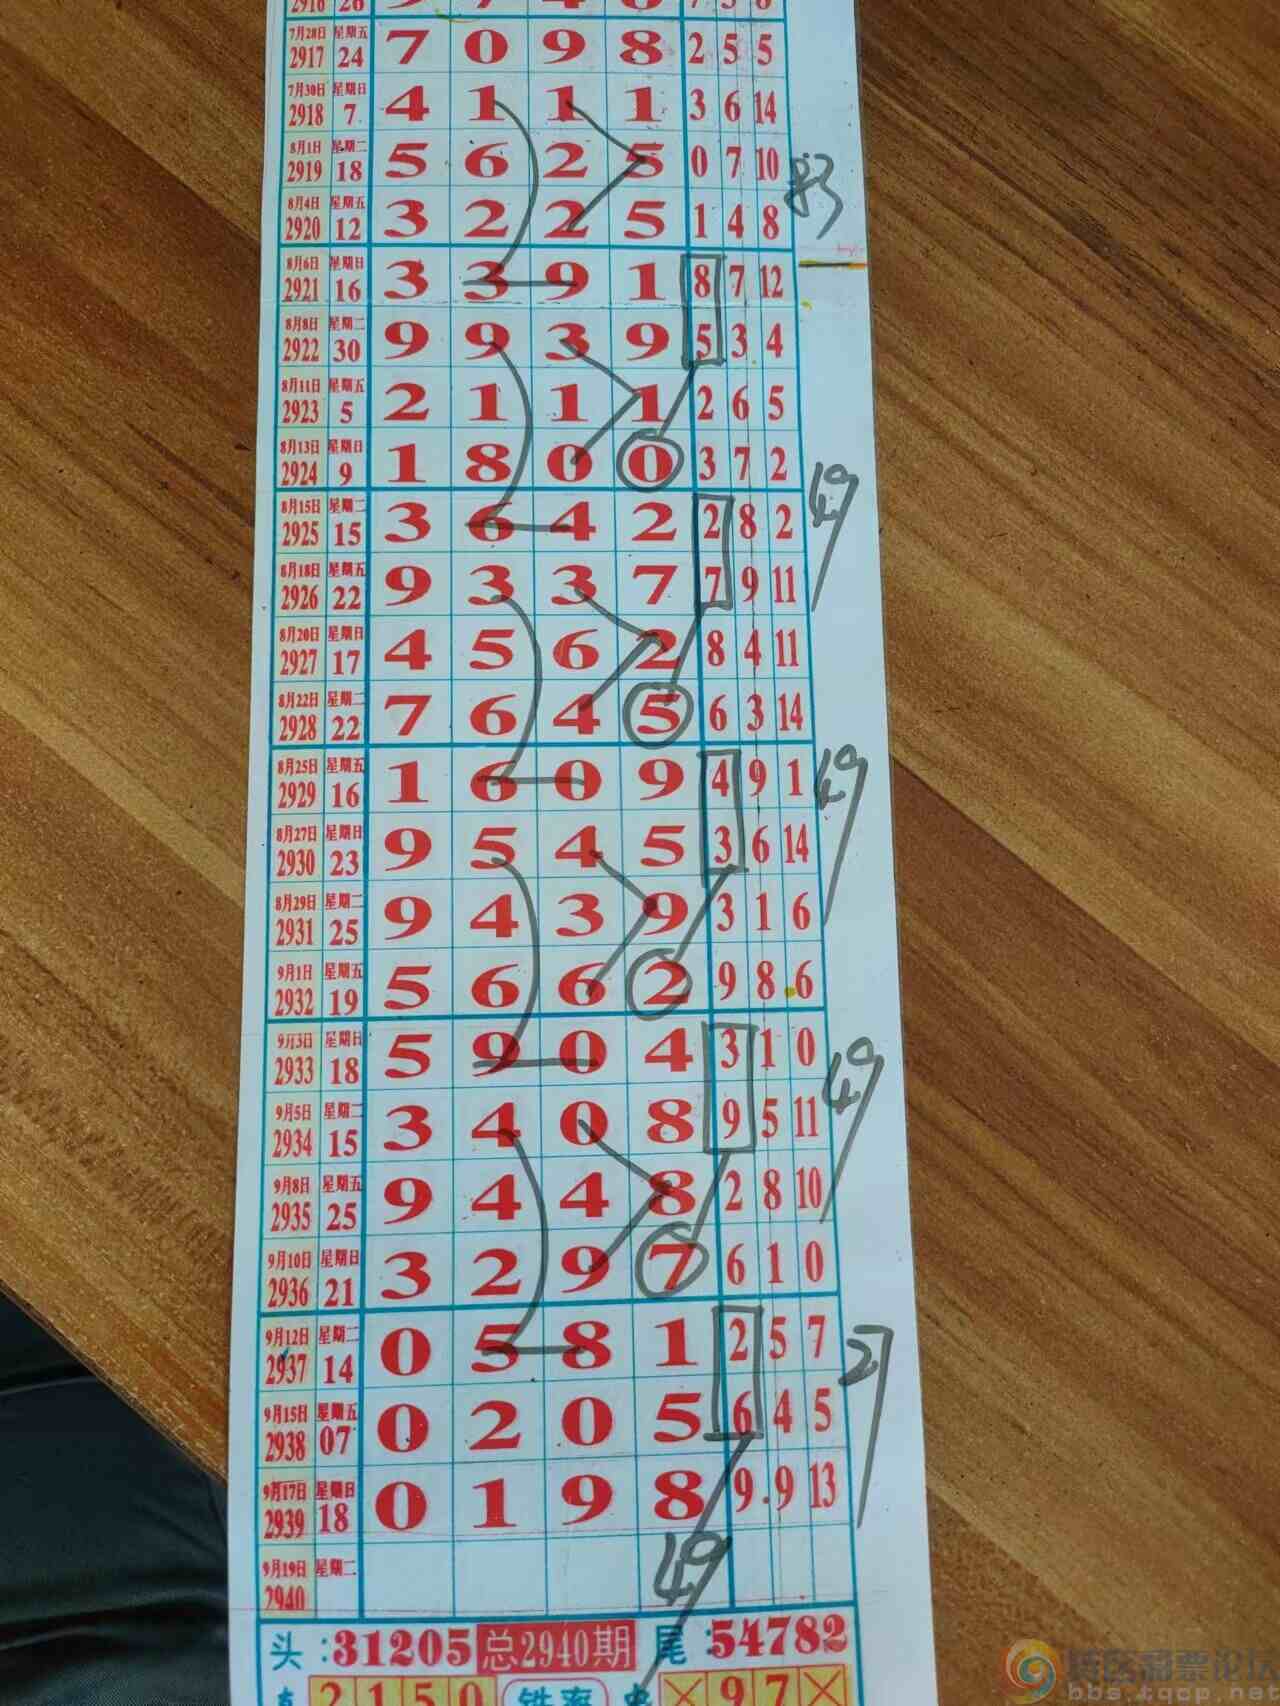 2916 26 9 7 4 6 7 5 8
7月28日 星期五 2917 24 7 0 9 8 2 5 5
7月30日 星期日 2918 7 4 1 1 1 3 6 14
8月1日 星期二 2919 18 5 6 2 5 0 7 10
83
8月4日 星期五 2920 12 3 2 2 5 1 4 8
8月6日 星期日 2921 16 3 3 9 1 8 7 12
8月8日 星期二 2922 30 9 9 3 9 5 3 4
8月11日 星期五 2923 5 2 1 1 1 2 6 5
8月13日 星期日 2924 9 1 8 0 0 3 7 2
49
8月15日 星期二 2925 15 3 6 4 2 2 8 2
8月18日 星期五 2926 22 9 3 3 7 7 9 11
8月20日 星期日 2927 17 4 5 6 2 8 4 11
8月22日 星期二 2928 22 7 6 4 5 6 3 14
49
8月25日 星期五 2929 16 1 6 0 9 4 9 1
8月27日 星期日 2930 23 9 5 4 5 3 6 14
8月29日 星期二 2931 25 9 4 3 9 3 1 6
9月1日 星期五 2932 19 5 6 6 2 9 8 6
9月3日 星期日 2933 18 5 9 0 4 3 1 0
49
9月5日 星期二 2934 15 3 4 0 8 9 5 11
9月8日 星期五 2935 25 9 4 4 8 2 8 10
9月10日 星期日 2936 21 3 2 9 7 6 1 0
9月12日 星期二 2937 14 0 5 8 1 2 5 7
27
9月15日 星期五 2938 07 0 2 0 5 6 4 5
9月17日 星期日 2939 18 0 1 9 8 9 9 13
9月19日 星期二 2940
49
头:31205 总2940期 尾:54782
2150 铁率 ×97×
bbs.tqcp.net